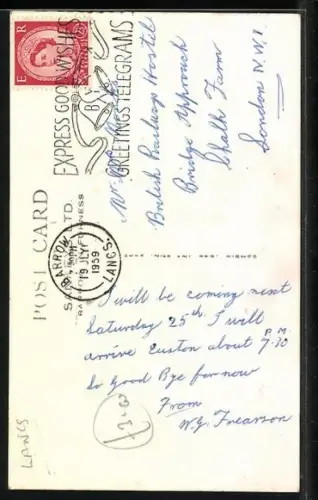 E R
EXPRESS GOOD WISHES
BY
GREETINGS TELEGRAMS
British Railways Hostel
Bridge Approach
Chalk Farm
London N.W.1
POST CARD
LTD.
BARROW-IN-FURNESS
BARROW
19 JLY
1959
LANCS.
I will be coming next
Saturday 25th. I will
arrive Euston about 7.30 P.M.
So Good Bye for now
From
W.G. Frearson
LANCS